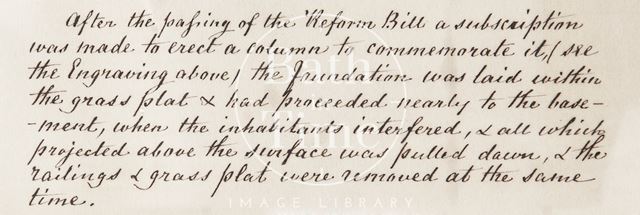 After the paſsing of the Reform Bill a subscription
was made to erect a column to commemorate it, (see
the Engraving above) the foundation was laid within
the grass plat & had proceeded nearly to the base-
-ment, when the inhabitants interfered, & all which
projected above the surface was pulled down, & the
railings & grass plat were removed at the same
time.
Bath
in
Time
IMAGE LIBRARY